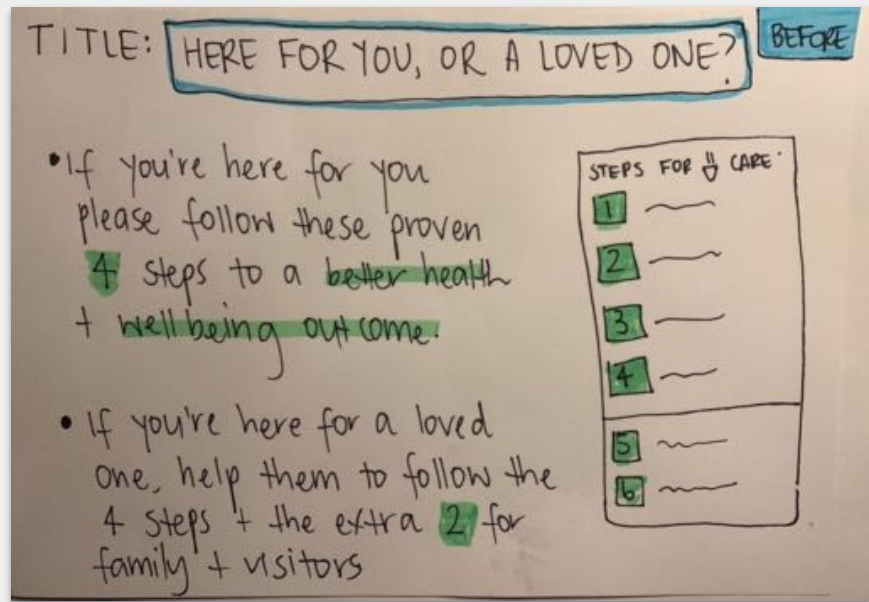 TITLE: HERE FOR YOU, OR A LOVED ONE?
BEFORE
• If you're here for you
please follow these proven
4 steps to a better health
+ wellbeing outcome.
• If you're here for a loved
one, help them to follow the
4 steps + the extra 2 for
family + visitors
STEPS FOR CARE
1
2
3
4
5
6